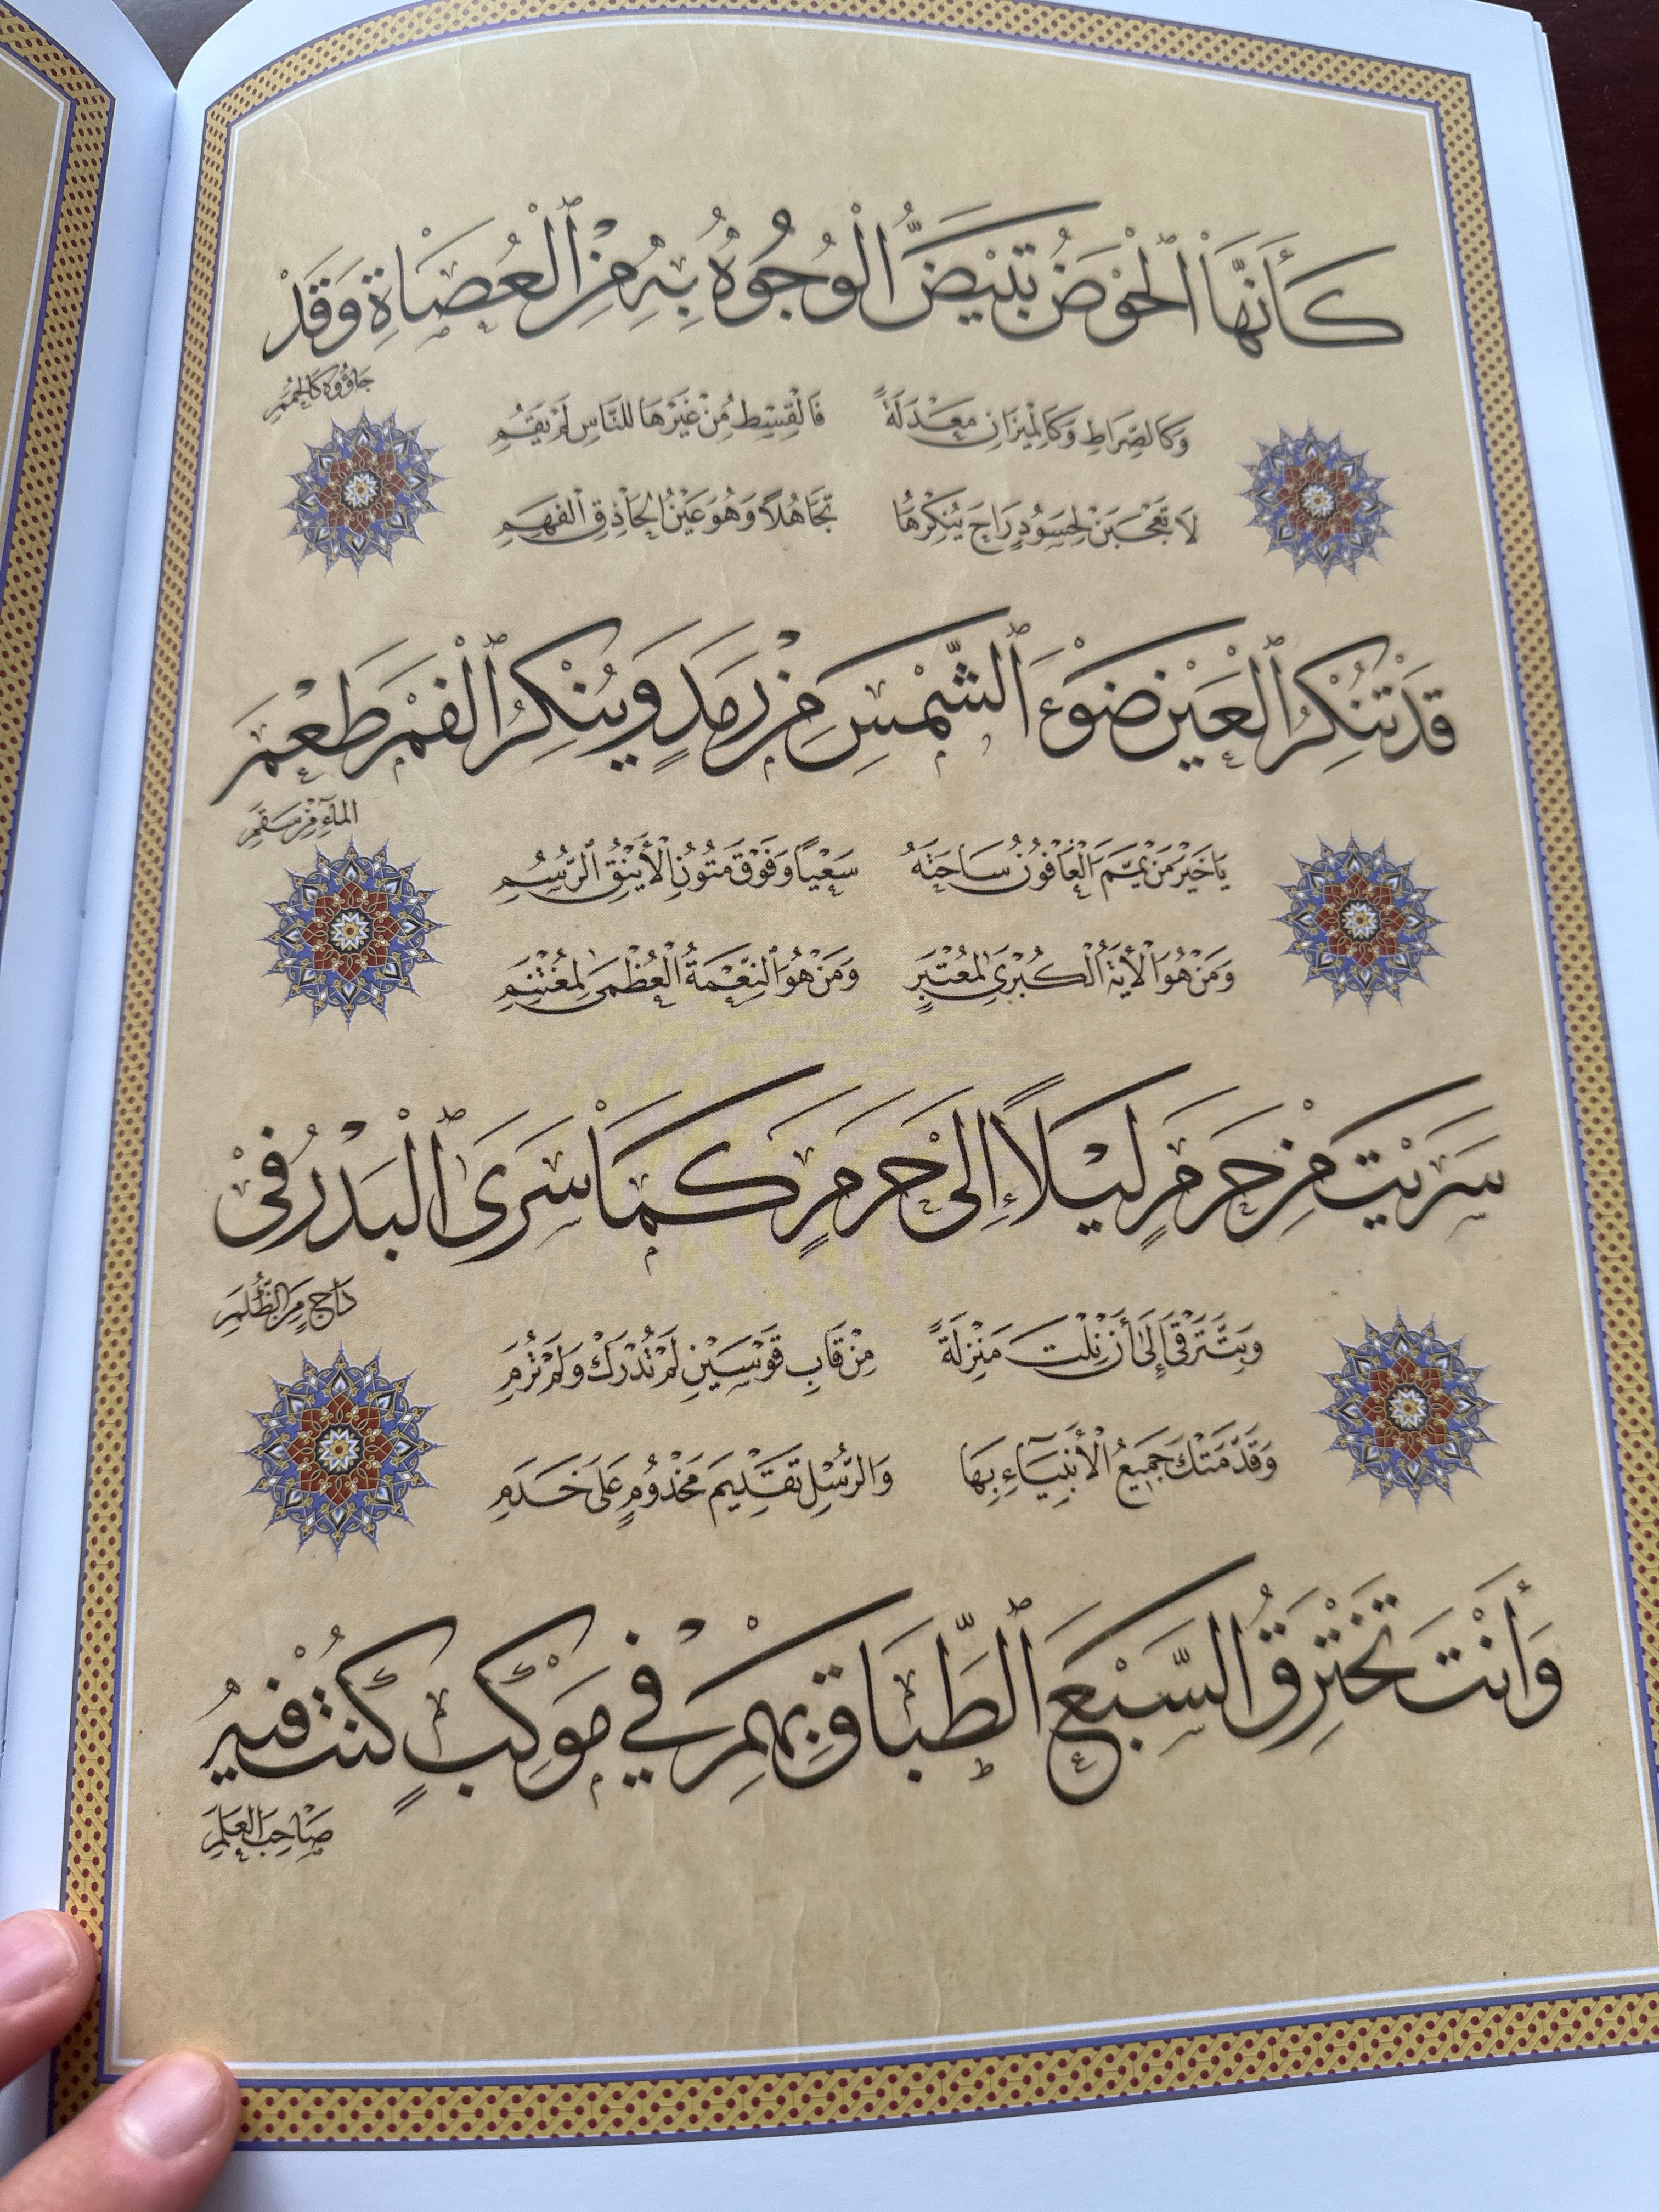 كَأَنَّهَا ٱلْحَوْضُ تَبْيَضُّ الْوُجُوهُ بِهِ مِنَ ٱلْعُصَاةِ وَقَدْ
جَاؤُوهُ كَالْحُمَمِ
وَكَالصِّرَاطِ وَكَالْمِيزَانِ مَعْدَلَةً فَالْقِسْطُ مِنْ غَيْرِهَا للنَّاسِ لَمْ يَقُمِ
لَا تَعْجَبَنْ لِحَسُودٍ رَاحَ يُنْكِرُهَا تَجَاهُلاً وَهُوَ عَيْنُ الْحَاذِقِ الْفَهِمِ
قَدْ تُنْكِرُ ٱلْعَيْنُ ضَوْءَ ٱلشَّمْسِ مِنْ رَمَدٍ وَيُنْكِرُ ٱلْفَمُ طَعْمَ
الْمَآءِ مِنْ سَقَمِ
يَا خَيْرَ مَنْ يَمَّمَ الْعَافُونَ سَاحَتَهُ سَعْيًا وَفَوْقَ مُتُونِ الْأَيْنُقِ الرُّسُمِ
وَمَنْ هُوَ الْأٰيَةُ الْكُبْرَى لِمُعْتَبِرٍ وَمَنْ هُوَ النِّعْمَةُ الْعُظْمَى لِمُغْتَنِمِ
سَرَيْتَ مِنْ حَرَمٍ لَيْلاً إِلَى حَرَمٍ كَمَا سَرَى ٱلْبَدْرُ فِي
دَاجٍ مِنَ الظُّلَمِ
وَبِتَّ تَرْقَى إِلَى أَنْ نِلْتَ مَنْزِلَةً مِنْ قَابِ قَوْسَيْنِ لَمْ تُدْرَكْ وَلَمْ تُرَمِ
وَقَدَّمَتْكَ جَمِيعُ الْأَنْبِيَآءِ بِهَا وَالرُّسْلِ تَقْدِيمَ مَخْدُومٍ عَلَى خَدَمِ
وَأَنْتَ تَخْتَرِقُ السَّبْعَ ٱلطِّبَاقَ بِهِمْ فِي مَوْكِبٍ كُنْتَ فِيهِ
صَاحِبَ الْعَلَمِ